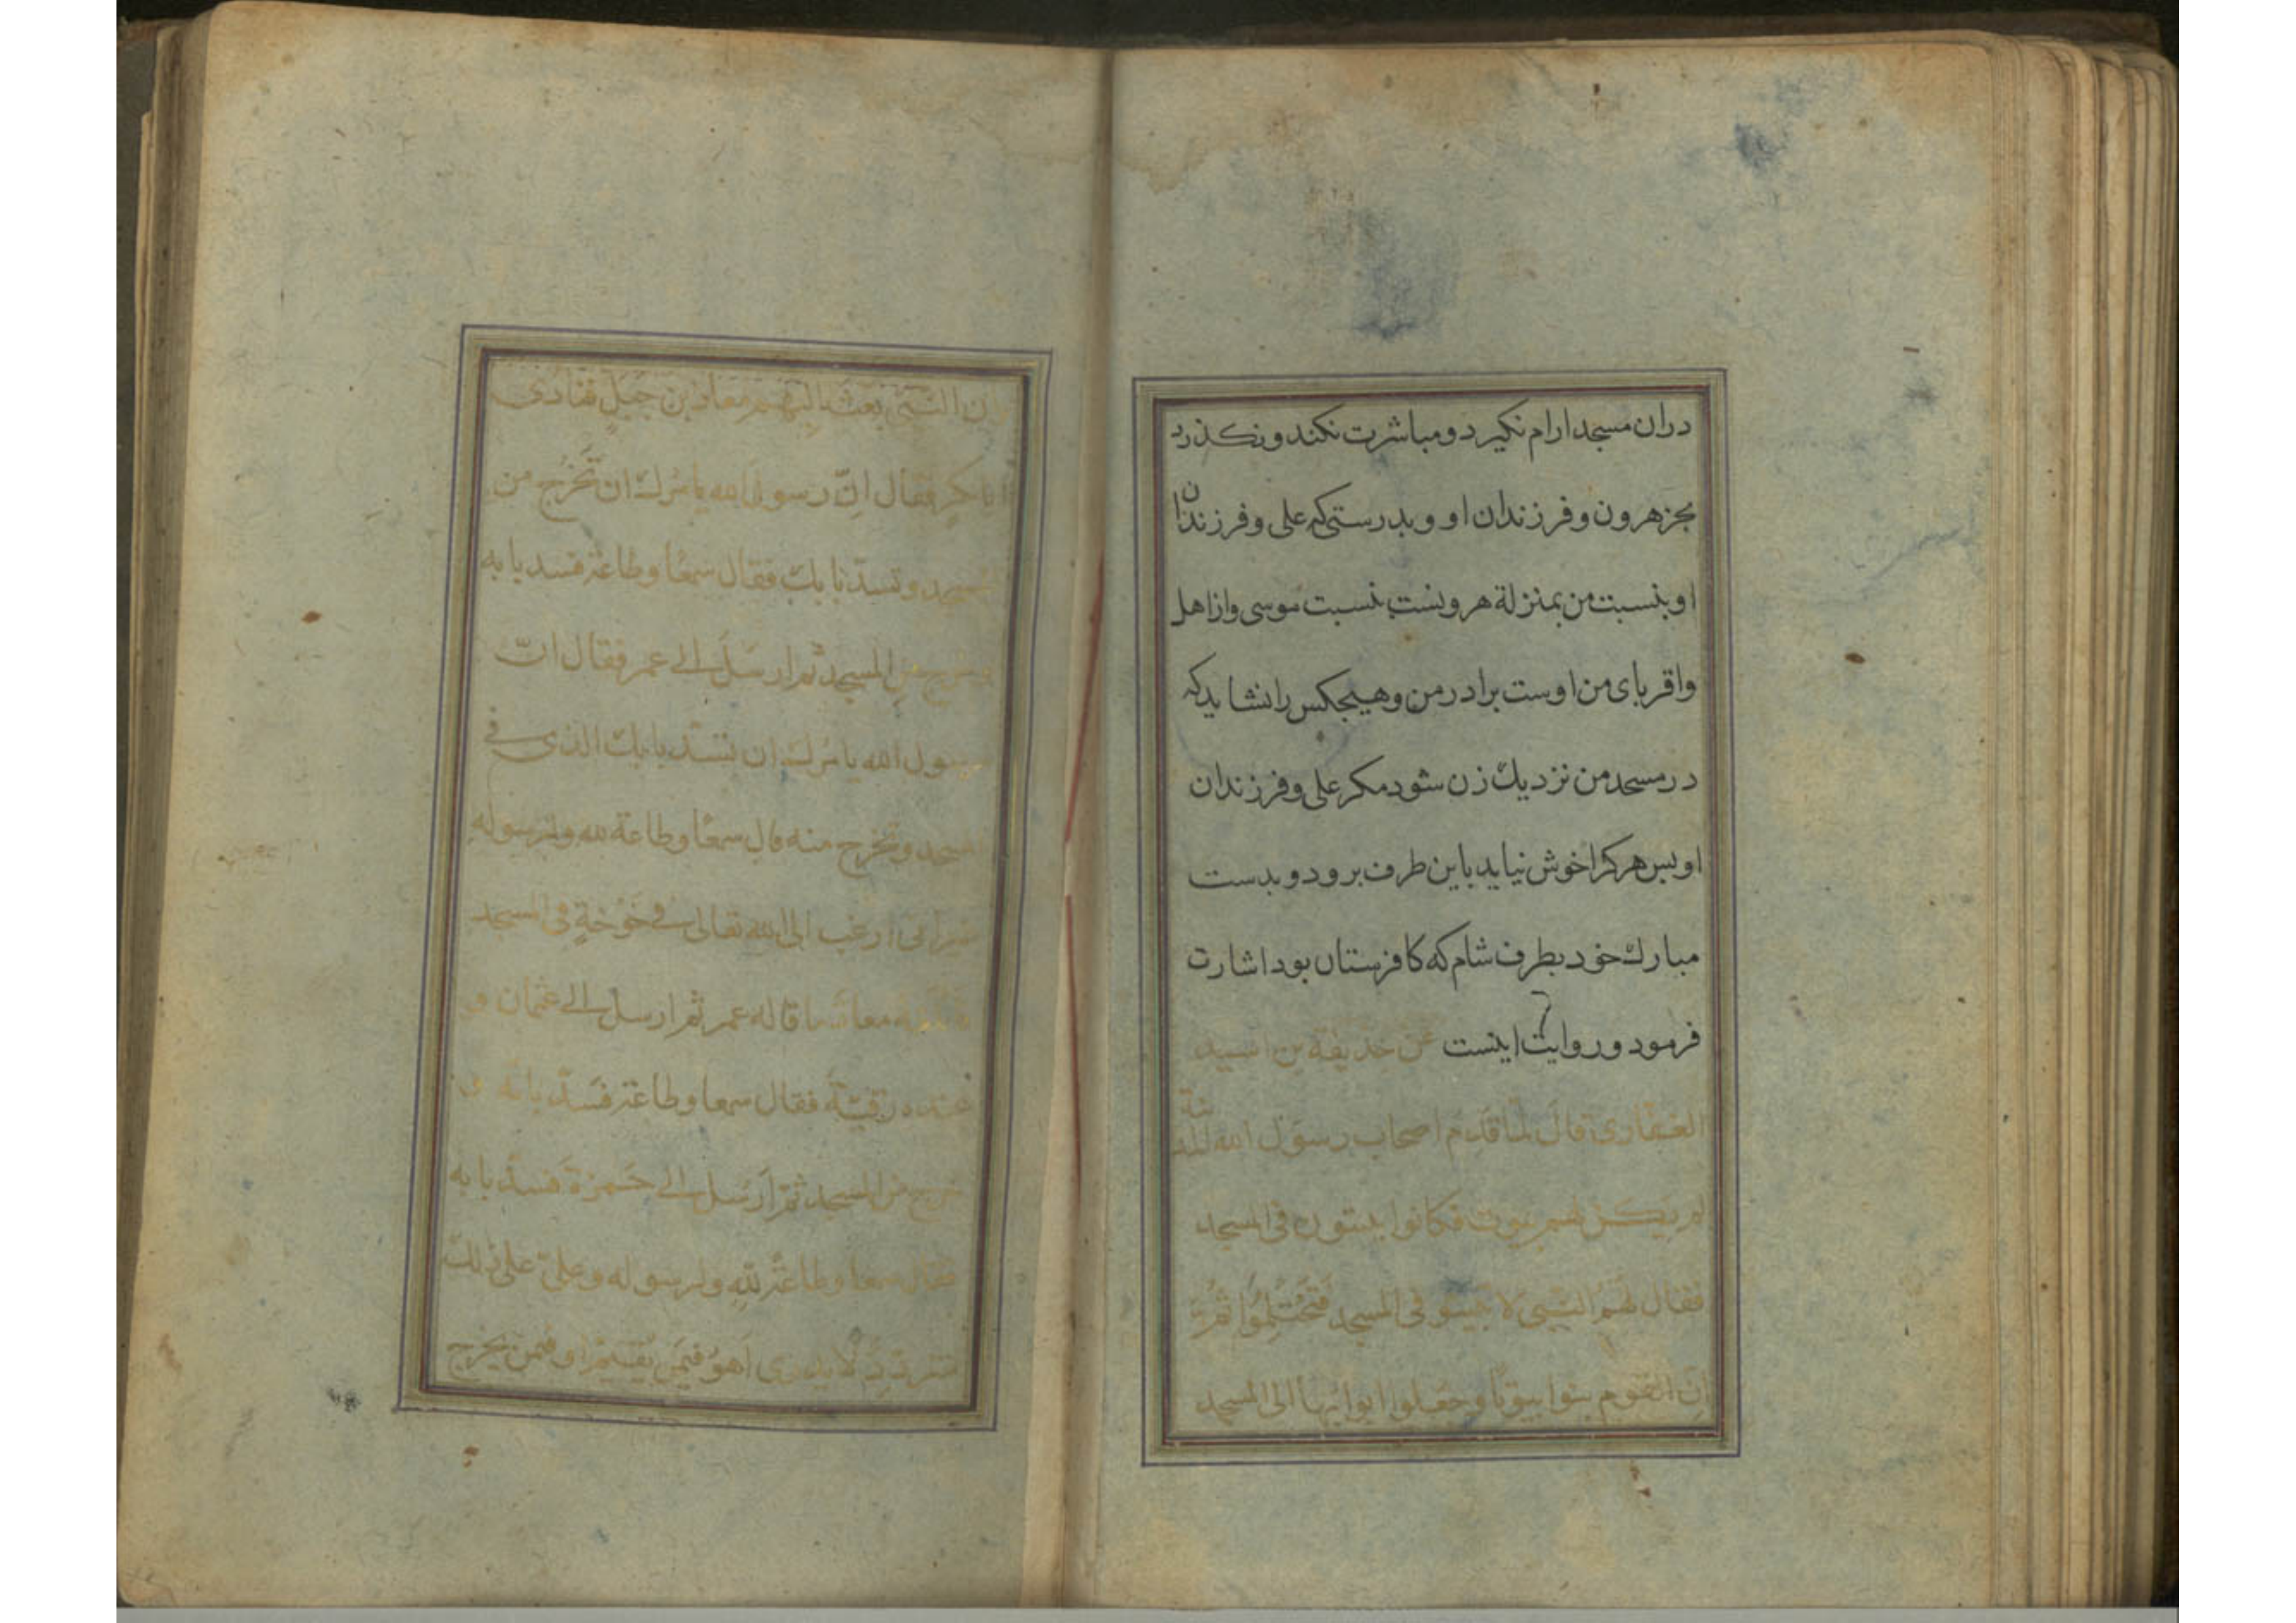 دران مسجد ارام نکیرد و مباشرت نکند و نکذرد
بجز هرون و فرزندان او و بدرستی که علی و فرزندان
او بنسبت من بمنزلة هرونست نسبت موسی و از اهل
واقربای من اوست برادر من و هیچکس را نشاید که
در مسجد من نزدیك زن شود مکر علی و فرزندان
او بس هر کرا خوش نیاید باین طرف برود و بدست
مبارك خود بطرف شام که کافرستان بود اشارت
فرمود و روایت اینست عن حذیفة بن اسید
الغفاری قال لما قدم اصحاب رسول الله
لم یکن لهم بیوت فکانوا یبیتون فی المسجد
فقال لهم النبی لا تبیتوا فی المسجد فتحتلموا ثم
ان القوم بنوا بیوتا وجعلوا ابوابها الی المسجد
وان النبی بعث الیهم معاذ بن جبل فنادی
ابا بکر فقال ان رسول الله یامرك ان تخرج من
المسجد وتسد بابك فقال سمعا وطاعة فسد بابه
وخرج من المسجد ثم ارسل الی عمر فقال ان
رسول الله یامرك ان تسد بابك الذی فی
المسجد وتخرج منه قال سمعا وطاعة لله ولرسوله
غیر انی ارغب الی الله تعالی فی خوخة فی المسجد
معاذ ما قاله عمر ثم ارسل الی عثمان و
عنده رقیة فقال سمعا وطاعة فسد بابه و
خرج من المسجد ثم ارسل الی حمزة فسد بابه
فقال سمعا وطاعة لله ولرسوله وعلی علی ذلك
یتردد لا یدری اهو فیمن یقیم او فیمن یخرج